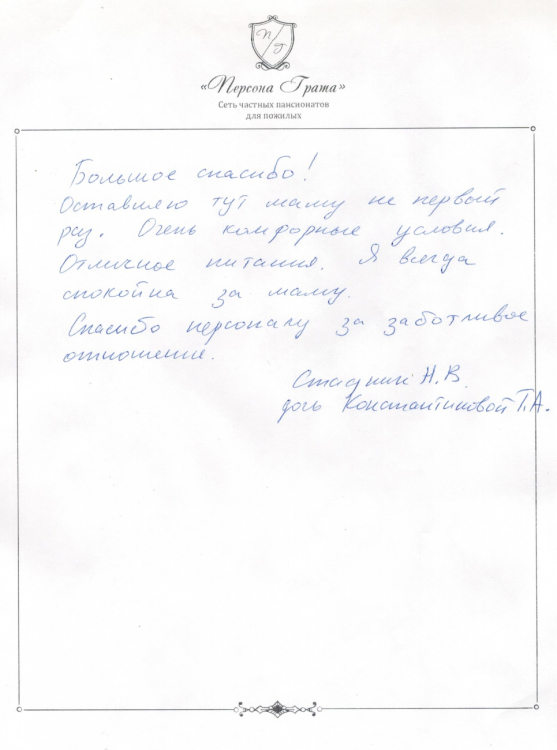 П/Г
«Персона Грата»
Сеть частных пансионатов
для пожилых
Большое спасибо!
Оставляю тут маму не первый
раз. Очень комфорные условия.
Отличное питания. Я всегда
спокойна за маму.
Спасибо персоналу за заботливое
отношение.
Стадник Н.В.
дочь Константиновой Т.А.